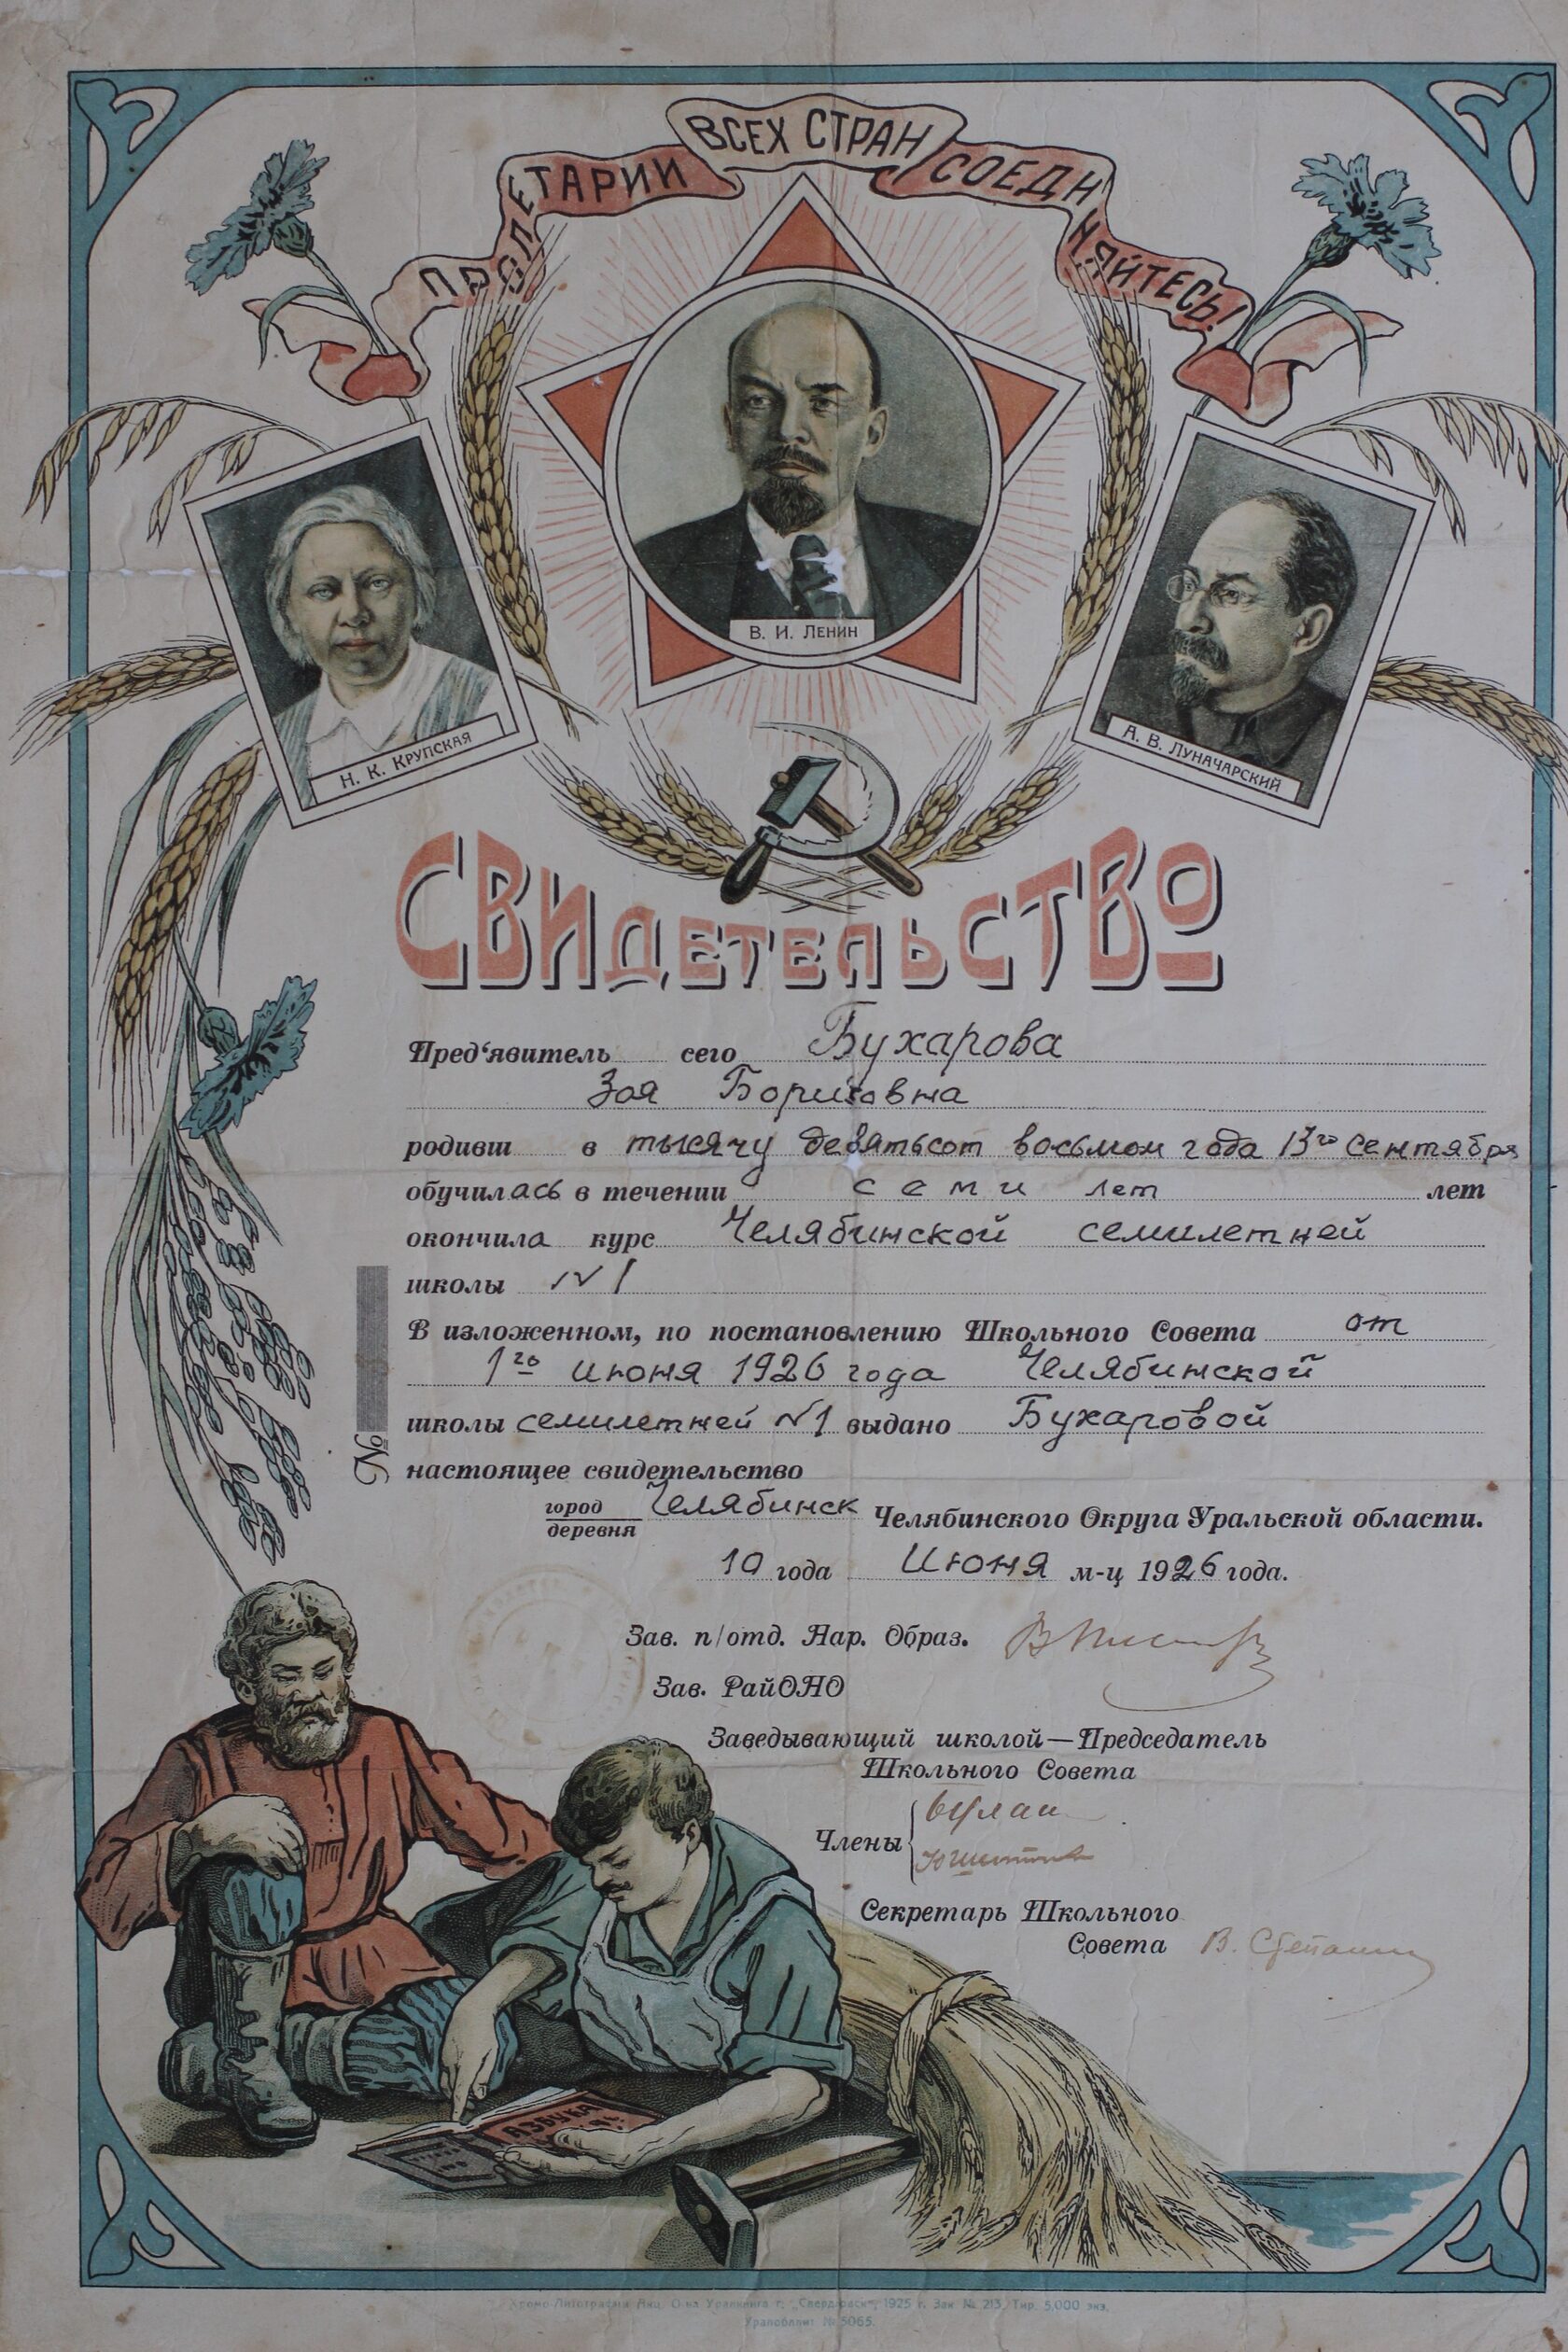 ПРОЛЕТАРИИ ВСЕХ СТРАН СОЕДИНЯЙТЕСЬ!
В. И. ЛЕНИН
Н. К. КРУПСКАЯ
А. В. ЛУНАЧАРСКИЙ
СВИДЕТЕЛЬСТВО
Пред‘явитель сего Бухарова
Зоя Борисовна
родивш в тысячу девятьсот восьмом года 13го сентября
обучилась в течении семи лет лет
окончила курс Челябинской семилетней
школы №1
В изложенном, по постановлению Школьного Совета от
1го июня 1926 года Челябинской
школы семилетней №1 выдано Бухаровой
№
настоящее свидетельство
город
деревня
Челябинск Челябинского Округа Уральской области.
10 года Июня м-ц 1926 года.
Зав. п/отд. Нар. Образ.
Зав. РайОНО
Заведывающий школой—Председатель
Школьного Совета
Члены
Секретарь Школьного
Совета В.
АЗБУКА
Хромо-Литография Акц. О-ва Уралкнига г. 1925 г. Зак № 213, Тир. 5,000 экз.
Ураллоблит № 5065.